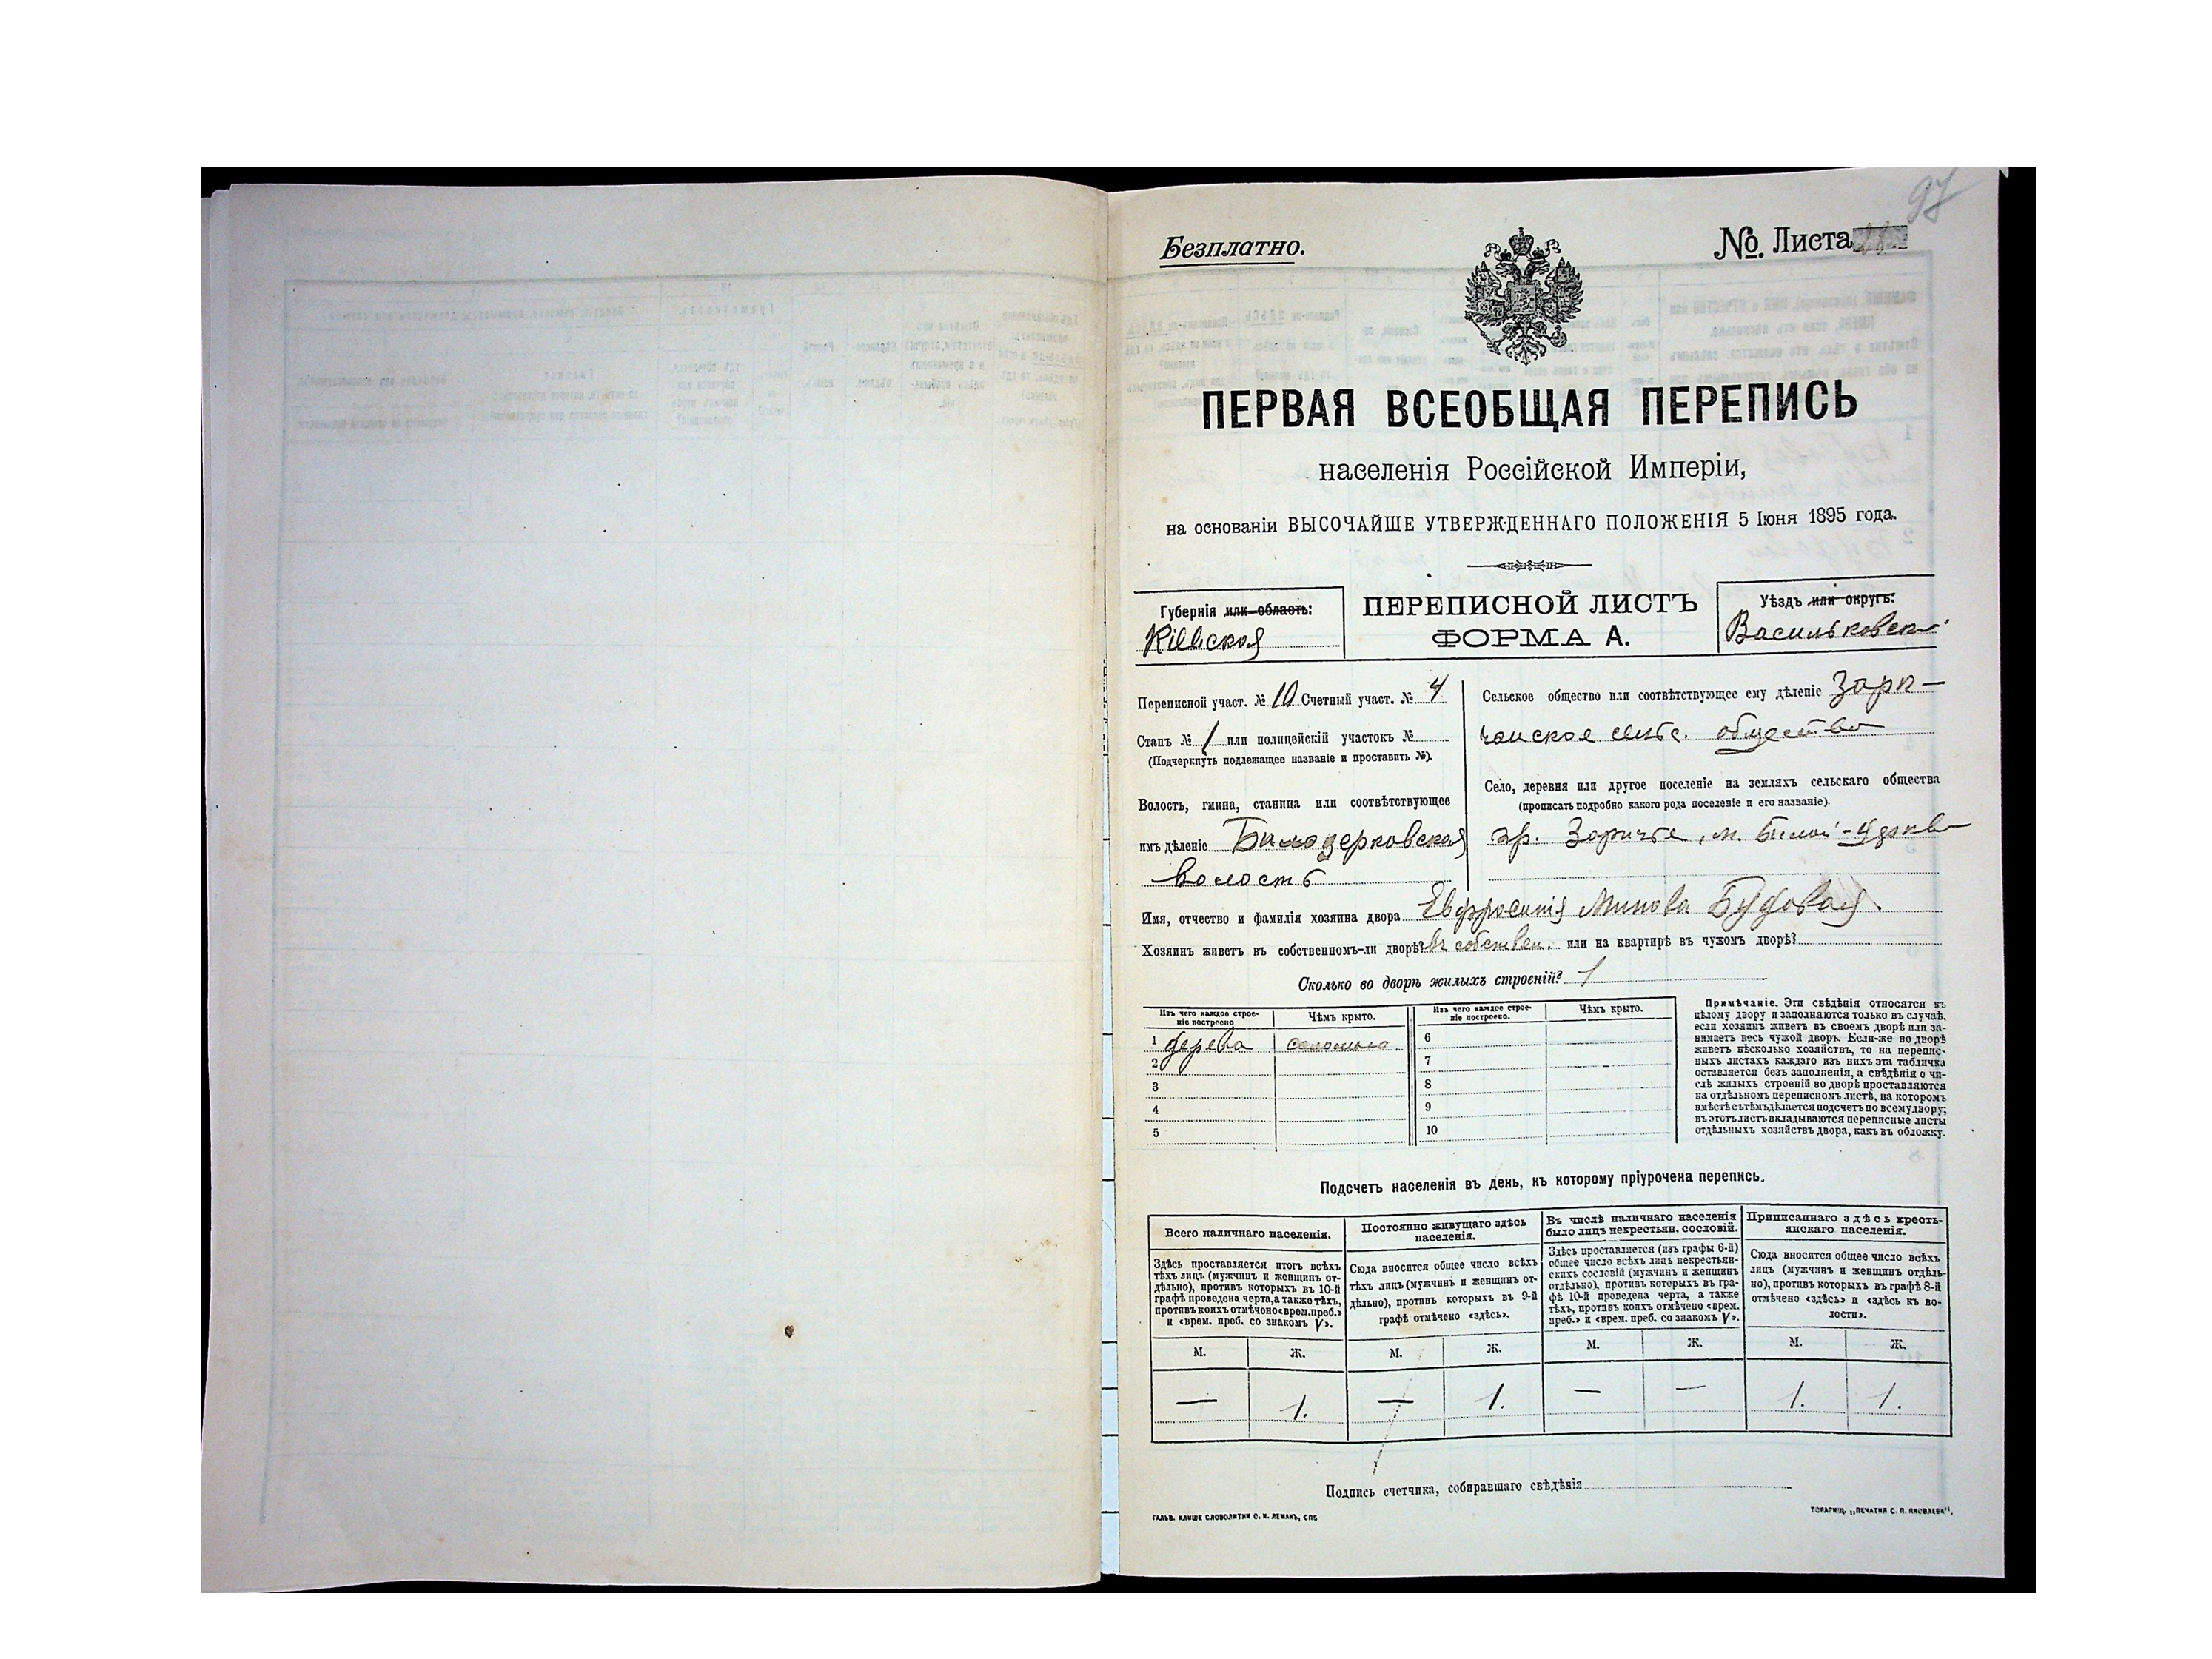 97
Безплатно.
№ Листа
ПЕРВАЯ ВСЕОБЩАЯ ПЕРЕПИСЬ
населенія Россійской Имперіи,
на основаніи ВЫСОЧАЙШЕ УТВЕРЖДЕННАГО ПОЛОЖЕНІЯ 5 Іюня 1895 года.
Губернія или область:
Кіевская
ПЕРЕПИСНОЙ ЛИСТЪ
ФОРМА А.
Уѣздъ или округъ:
Васильковскій
Переписной участ. № 10 Счетный участ. № 4
Станъ № 1 или полицейскій участокъ №
(Подчеркнуть подлежащее названіе и проставить №).
Волость, гмина, станица или соотвѣтствующее
имъ дѣленіе Билоцерковская
волость
Сельское общество или соотвѣтствующее ему дѣленіе Зари-
чанское сельс. общество
Село, деревня или другое поселеніе на земляхъ сельскаго общества
(прописать подробно какого рода поселеніе и его названіе).
пр. Заричье, м. Билой-Церкви
Имя, отчество и фамилія хозяина двора Евфросинія Минова Будовая.
Хозяинъ живетъ въ собственномъ-ли дворѣ? въ собствен. или на квартирѣ въ чужомъ дворѣ?
Сколько во дворѣ жилыхъ строеній? 1
Изъ чего каждое строе-
ніе построено
Чѣмъ крыто.
Изъ чего каждое строе-
ніе построено.
Чѣмъ крыто.
1 дерева соломою 6
2 7
3 8
4 9
5 10
Примѣчаніе. Эти свѣдѣнія относятся къ
цѣлому двору и заполняются только въ случаѣ,
если хозяинъ живетъ въ своемъ дворѣ или за-
нимаетъ весь чужой дворъ. Если-же во дворѣ
живетъ нѣсколько хозяйствъ, то на перепис-
ныхъ листахъ каждаго изъ нихъ эта табличка
оставляется безъ заполненія, а свѣдѣнія о чи-
слѣ жилыхъ строеній во дворѣ проставляются
на отдѣльномъ переписномъ листѣ, на которомъ
вмѣстѣ съ тѣмъ дѣлается подсчетъ по всему двору;
въ этотъ листъ вкладываются переписные листы
отдѣльныхъ хозяйствъ двора, какъ въ обложку.
Подсчетъ населенія въ день, къ которому пріурочена перепись.
Всего наличнаго населенія.
Здѣсь проставляется итогъ всѣхъ
тѣхъ лицъ (мужчинъ и женщинъ от-
дѣльно), противъ которыхъ въ 10-й
графѣ проведена черта, а также тѣхъ,
противъ коихъ отмѣчено «врем. преб.»
и «врем. преб. со знакомъ V».
Постоянно живущаго здѣсь
населенія.
Сюда вносится общее число всѣхъ
тѣхъ лицъ (мужчинъ и женщинъ от-
дѣльно), противъ которыхъ въ 9-й
графѣ отмѣчено «здѣсь».
Въ числѣ наличнаго населенія
было лицъ некрестьян. сословій.
Здѣсь проставляется (изъ графы 6-й)
общее число всѣхъ лицъ некрестьян-
скихъ сословій (мужчинъ и женщинъ
отдѣльно), противъ которыхъ въ гра-
фѣ 10-й проведена черта, а также
тѣхъ, противъ коихъ отмѣчено «врем.
преб.» и «врем. преб. со знакомъ V».
Приписаннаго здѣсь кресть-
янскаго населенія.
Сюда вносится общее число всѣхъ
лицъ (мужчинъ и женщинъ отдѣль-
но), противъ которыхъ въ графѣ 8-й
отмѣчено «здѣсь» и «здѣсь къ во-
лости».
М. Ж. М. Ж. М. Ж. М. Ж.
— 1. — 1. — — 1. 1.
Подпись счетчика, собиравшаго свѣдѣнія
ГАЛЬВ. КЛИШЕ СЛОВОЛИТНИ О. И. ЛЕМАНЪ, СПБ
ТОВАРИЩ. „ПЕЧАТНЯ С. П. ЯКОВЛЕВА“.